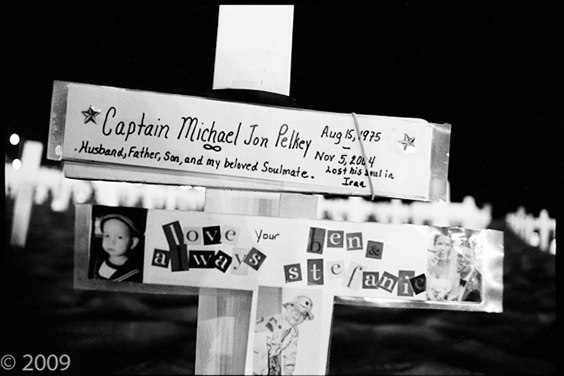 Captain Michael Jon Pelkey
Husband, Father, Son, and my beloved Soulmate.
Aug 15, 1975
–
Nov 5, 2004
Lost his soul in
Iraq
love your ben &
always stefanie
© 2009